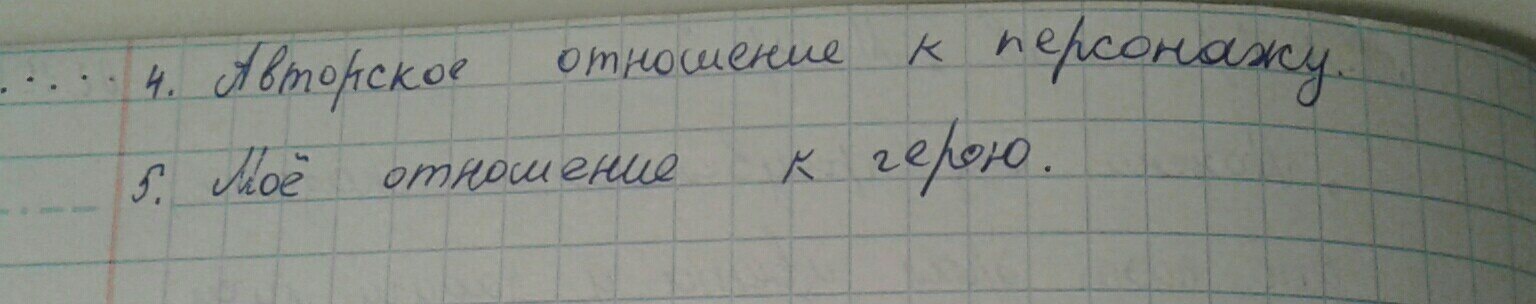 4. Авторское отношение к персонажу.
5. Моё отношение к герою.